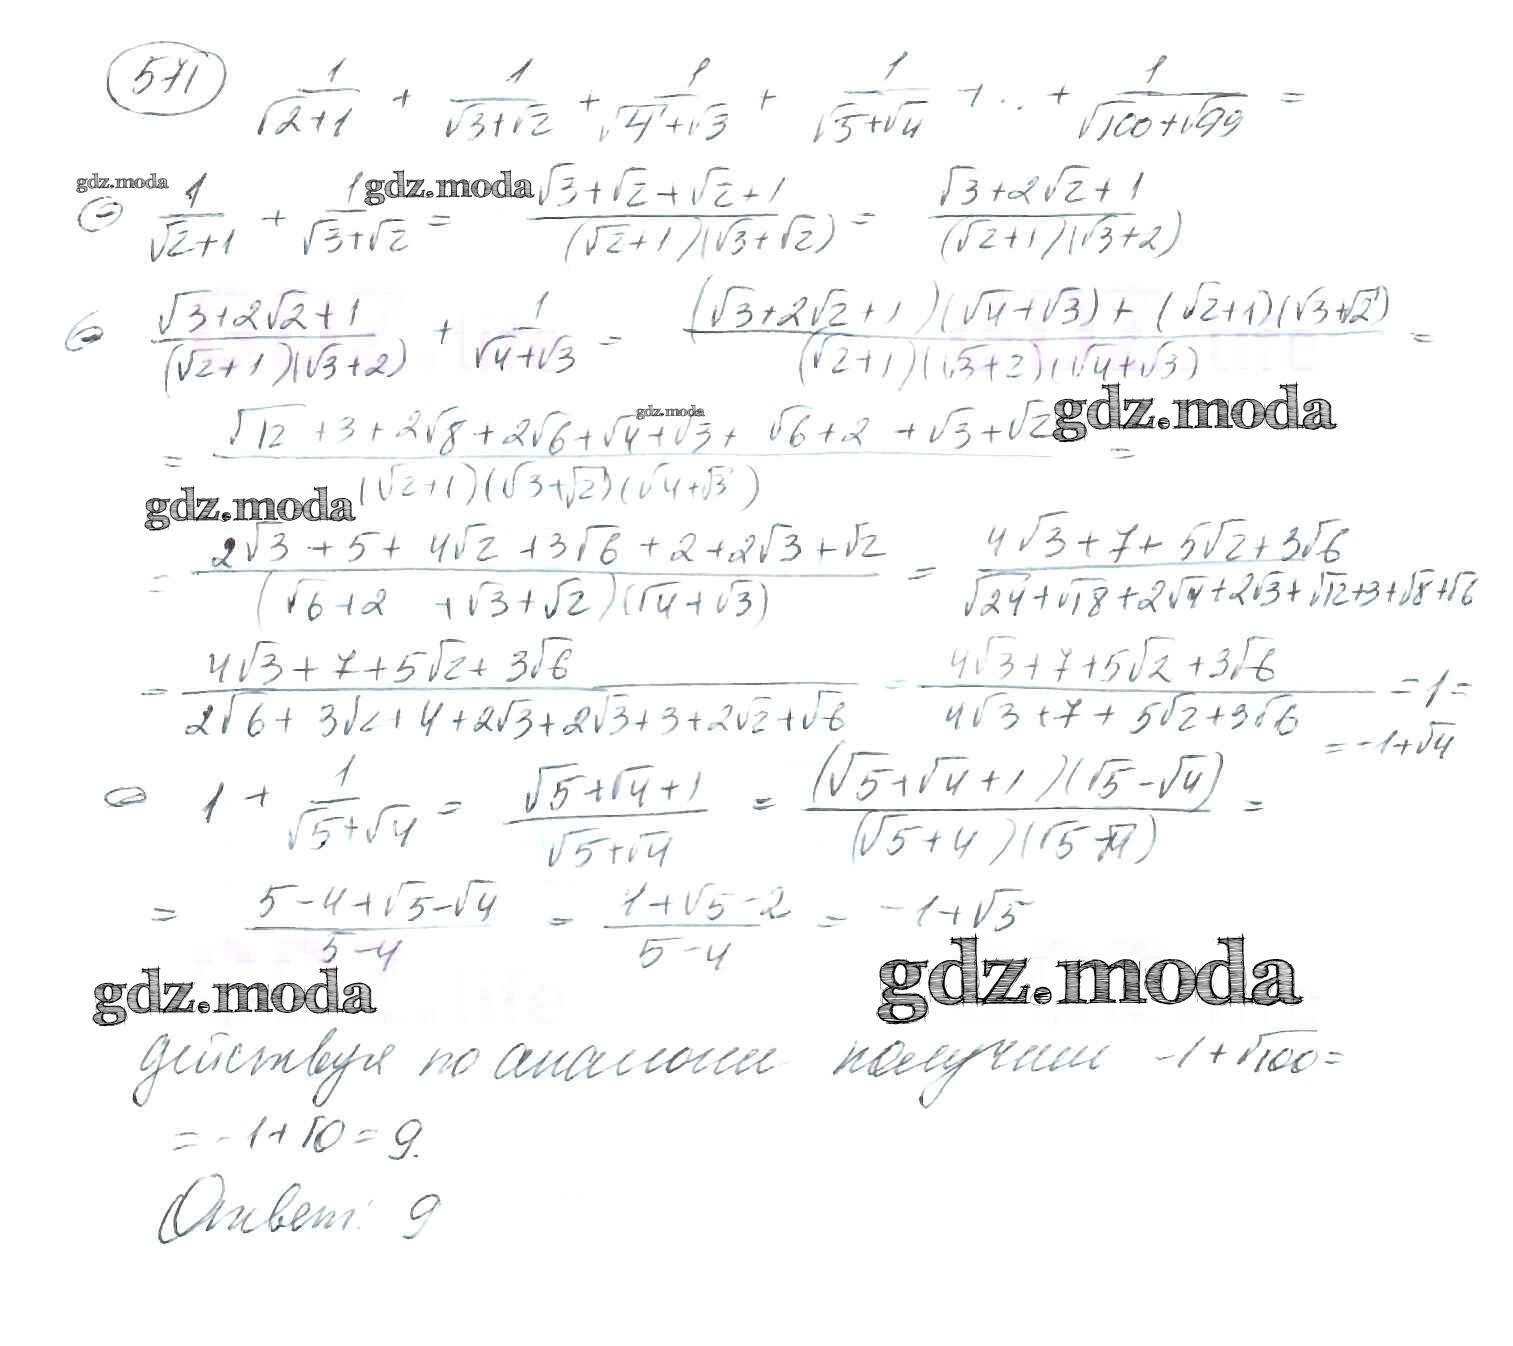 571 1/√2+1 + 1/√3+√2 + 1/√4+√3 + 1/√5+√4 + .. + 1/√100+√99 =
gdz.moda gdz.moda
1) 1/√2+1 + 1/√3+√2 = √3+√2+√2+1/(√2+1)(√3+√2) = √3+2√2+1/(√2+1)(√3+2)
√3+2√2+1/(√2+1)(√3+2) + 1/√4+√3 = (√3+2√2+1)(√4+√3)+(√2+1)(√3+√2)/(√2+1)(√3+2)(√4+√3) =
gdz.moda gdz.moda
= √12+3+2√8+2√6+√4+√3+√6+2+√3+√2/(√2+1)(√3+√2)(√4+√3) =
gdz.moda
= 2√3+5+4√2+3√6+2+2√3+√2/(√6+2+√3+√2)(√4+√3) = 4√3+7+5√2+3√6/√24+√18+2√4+2√3+√12+3+√8+√6
= 4√3+7+5√2+3√6/2√6+3√2+4+2√3+2√3+3+2√2+√6 = 4√3+7+5√2+3√6/4√3+7+5√2+3√6 = 1 =
= -1+√4
1 + 1/√5+√4 = √5+√4+1/√5+√4 = (√5+√4+1)(√5-√4)/(√5+4)(√5-√4) =
= 5-4+√5-√4/5-4 = 1+√5-2/5-4 = -1+√5
gdz.moda gdz.moda
действуя по аналогии получим -1+√100=
= -1+10 = 9.
Ответ: 9